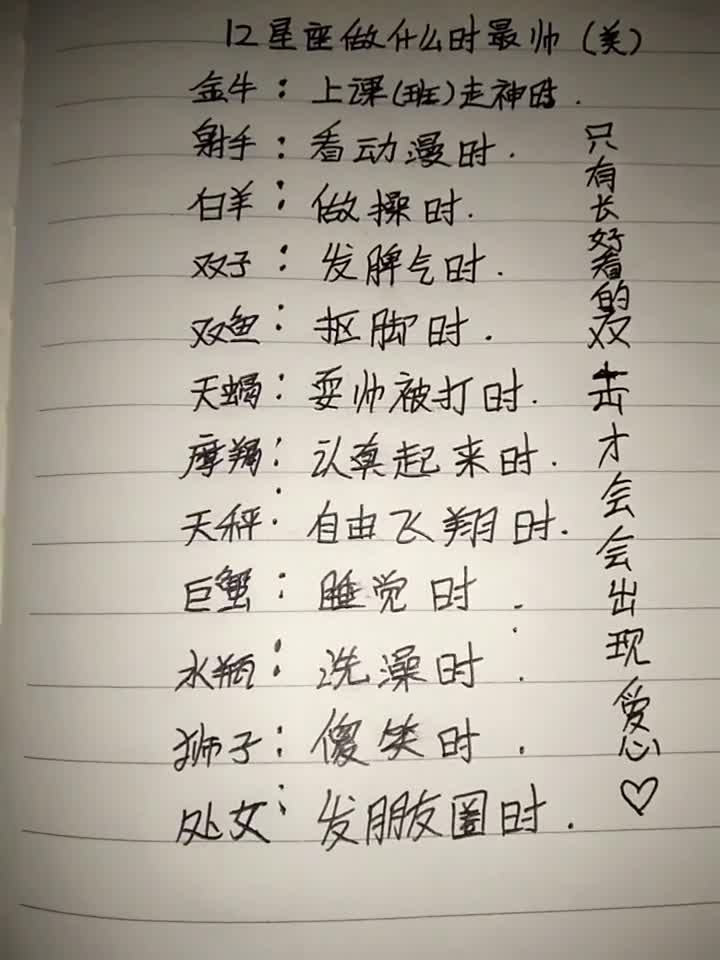 12星座做什么时最帅(美)
金牛:上课(班)走神时.
射手:看动漫时.
白羊:做操时.
双子:发脾气时.
双鱼:抠脚时.
天蝎:耍帅被打时.
摩羯:认真起来时.
天秤:自由飞翔时.
巨蟹:睡觉时.
水瓶:洗澡时.
狮子:傻笑时.
处女:发朋友圈时.
只有长好看的双击才会会出现爱心♡